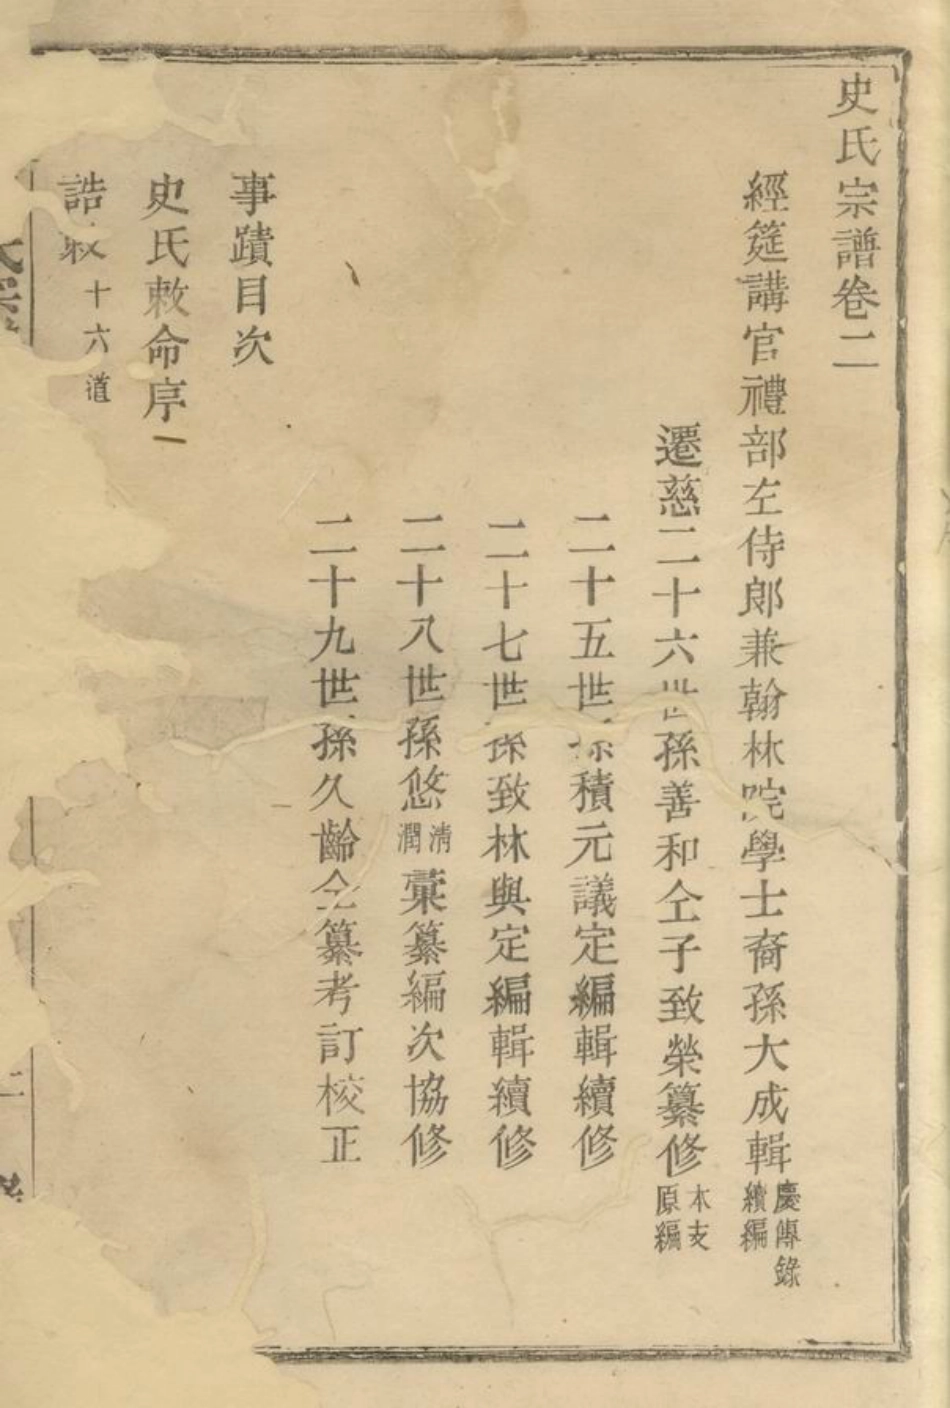 史氏宗譜卷二
經筵講官禮部左侍郎兼翰林院學士裔孫大成輯慶傳錄續編
遷慈二十六世孫善和仝子致榮纂修本支原編
二十五世孫積元議定編輯續修
二十七世孫致林與定編輯續修
二十八世孫悠清潤彙纂編次協修
二十九世孫久齡仝纂考訂校正
事蹟目次
史氏敕命序一
誥敕十六道